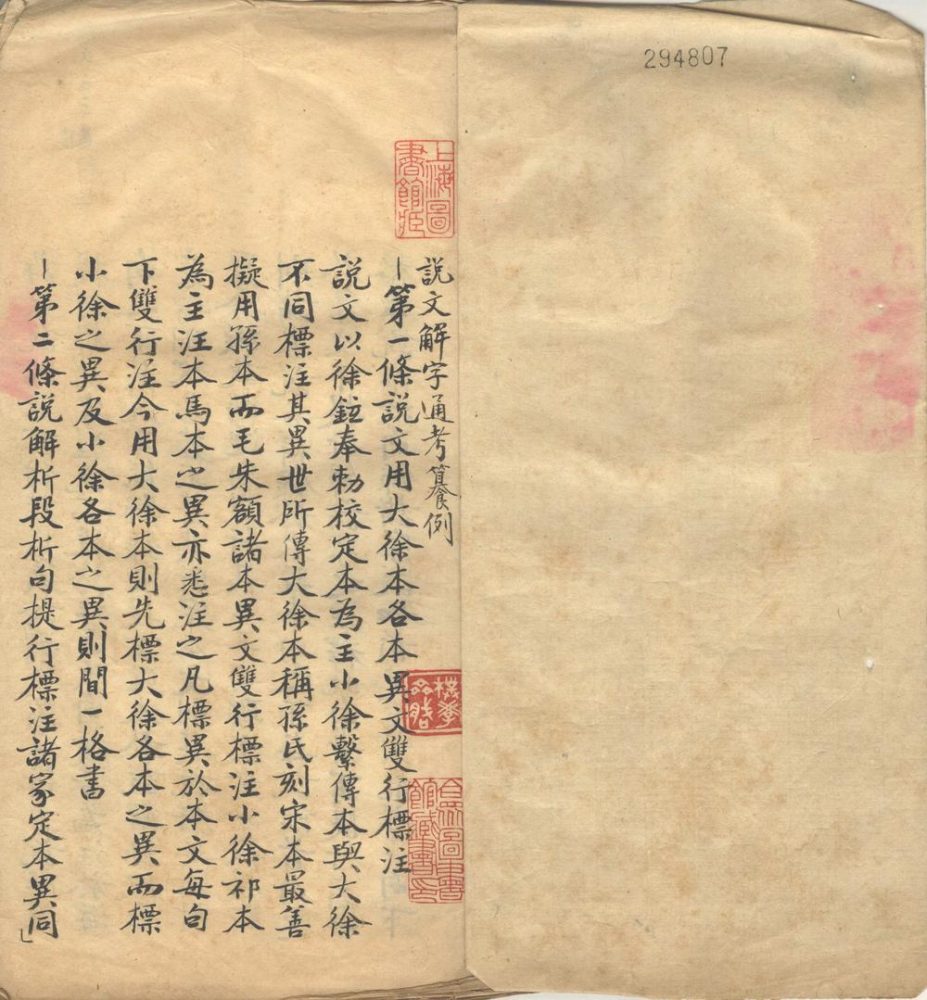 294807
上海圖
書館藏
說文解字通考纂例
一第一條說文用大徐本各本異文雙行標注
說文以徐鉉奉勅校定本為主小徐繫傳本與大徐
不同標注其異世所傳大徐本稱孫氏刻宋本最善
擬用孫本而毛朱額諸本異文雙行標注小徐祁本
為主汪本馬本之異亦悉注之凡標異於本文每句
下雙行注今用大徐本則先標大徐各本之異而標
小徐之異及小徐各本之異則間一格書
一第二條說解析段析句提行標注諸家定本異同
合眾圖書
館藏書印